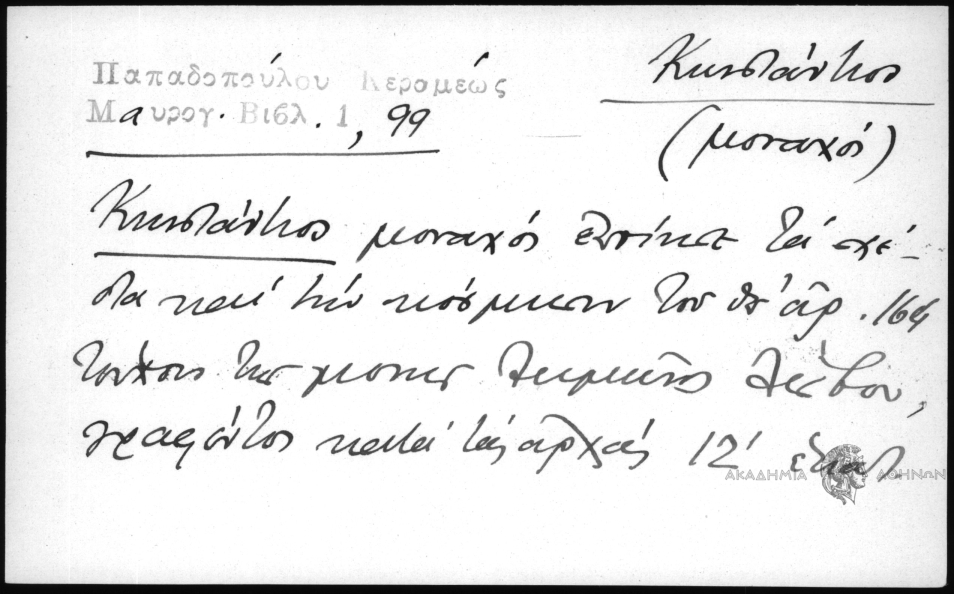 Παπαδοπούλου Κεραμέως
Μαυρογ. Βιβλ. 1, 99
Κωνστάντιος
(μοναχός)
Κωνστάντιος μοναχός ἐποίησε τά σχέ-
δια καί τήν κόσμησιν τοῦ ὑπ' ἀρ. 164
τῆς μονῆς Λειμῶνος Λέσβου,
γραφέντος κατά τάς ἀρχάς 12' ἑκατ.
ΑΚΑΔΗΜΙΑ ΑΘΗΝΩΝ